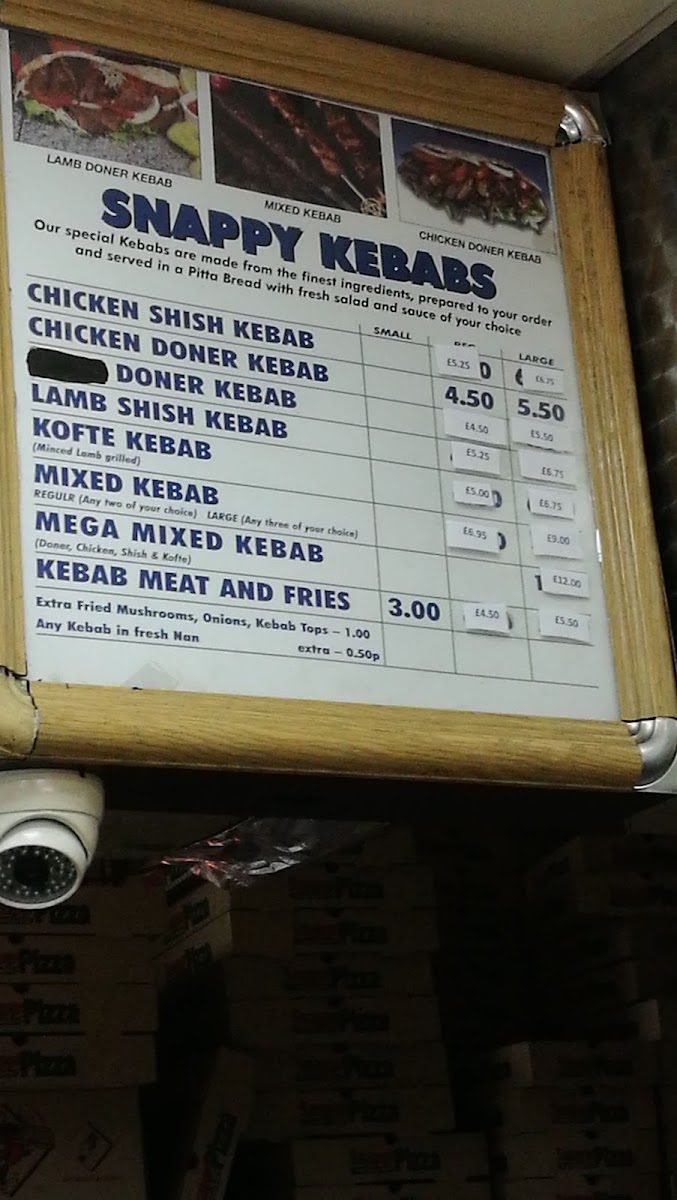 LAMB DONER KEBAB
MIXED KEBAB
CHICKEN DONER KEBAB
SNAPPY KEBABS
Our special Kebabs are made from the finest ingredients, prepared to your order
and served in a Pitta Bread with fresh salad and sauce of your choice
SMALL LARGE
CHICKEN SHISH KEBAB £5.25 £6.75
CHICKEN DONER KEBAB 4.50 5.50
DONER KEBAB £4.50 £5.50
LAMB SHISH KEBAB £5.25 £6.75
KOFTE KEBAB £5.00 £6.75
(Minced Lamb grilled)
MIXED KEBAB £6.95 £9.00
REGULR (Any two of your choice) LARGE (Any three of your choice)
MEGA MIXED KEBAB £12.00
(Doner, Chicken, Shish & Kofte)
KEBAB MEAT AND FRIES 3.00 £4.50 £5.50
Extra Fried Mushrooms, Onions, Kebab Tops – 1.00
Any Kebab in fresh Nan extra – 0.50p
Pizza
Pizza
Pizza
Pizza
Pizza
Pizza
Pizza
Pizza
Pizza